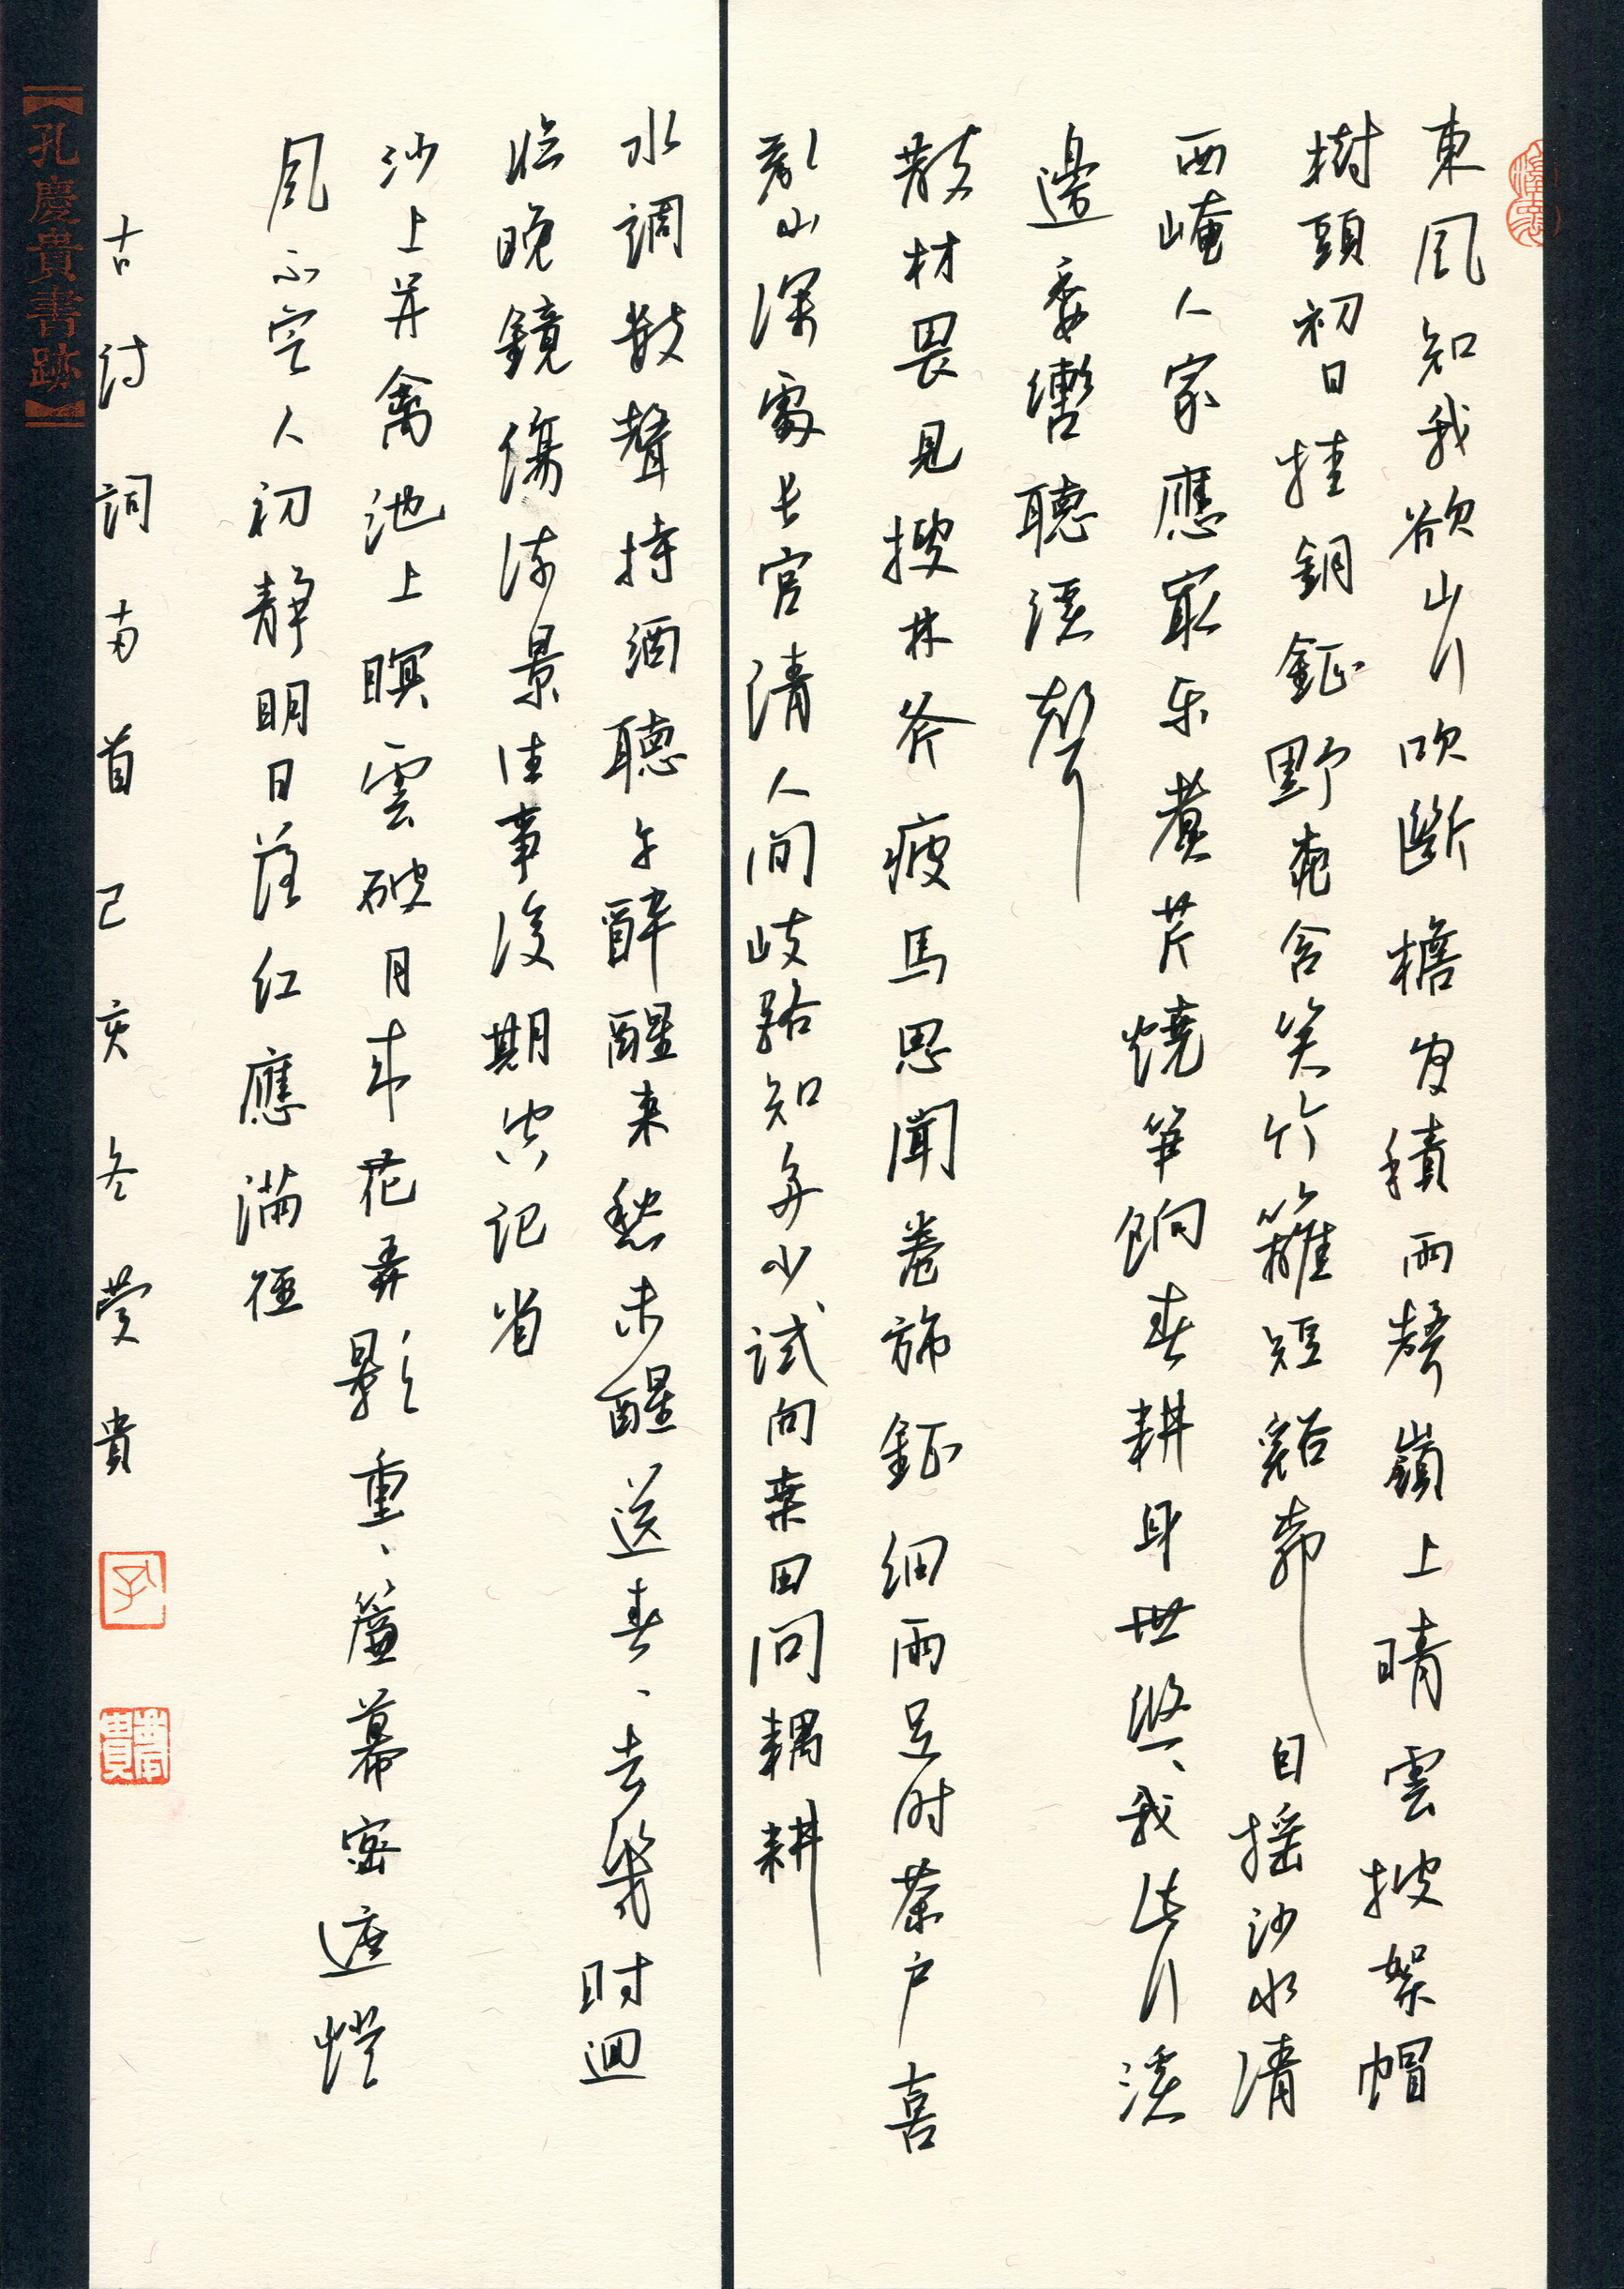 東風知我欲山行吹斷檐間積雨聲嶺上晴雲披絮帽
樹頭初日挂銅鉦野桃含笑竹籬短谿柳自搖沙水清
西崦人家應最樂煮芹燒筍餉春耕身世悠、我此行溪
邊委轡聽溪聲
散材畏見搜林斧疲馬思聞卷旆鉦細雨足时茶户喜
亂山深處長官清人间歧路知多少試向桑田问耦耕
水調數聲持酒聽午醉醒来愁未醒送春、去幾时迴
临晚鏡傷流景往事後期空记省
沙上并禽池上暝雲破月来花弄影重、簾幕密遮燈
風不定人初靜明日落红應滿徑
古诗詞两首己亥冬慶貴
【孔慶貴書跡】
孔
慶貴